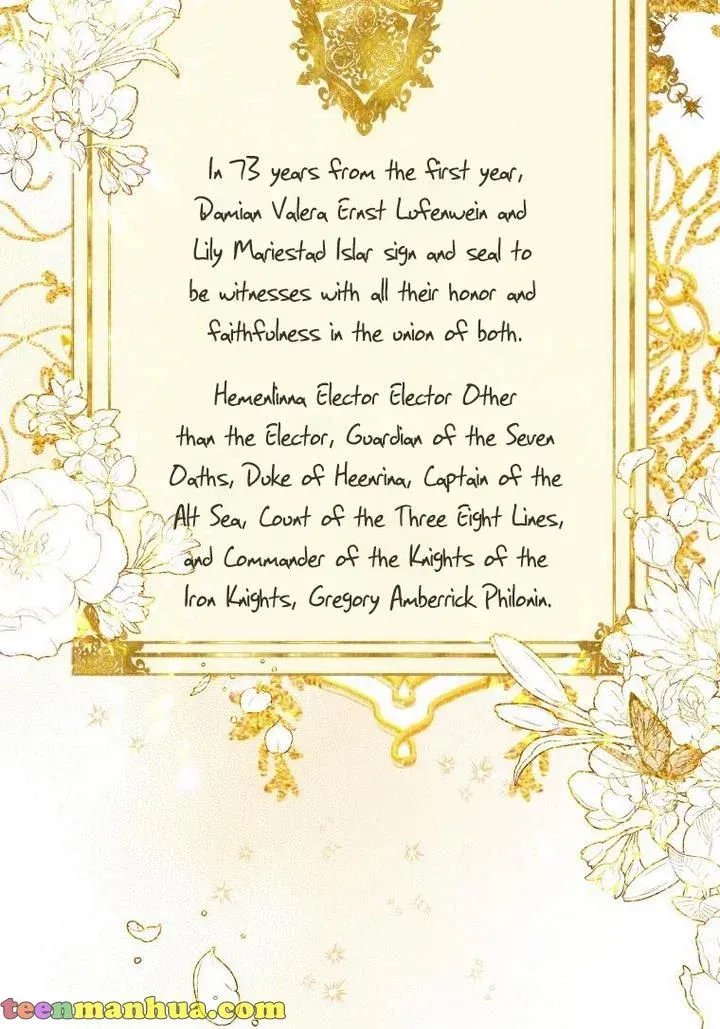 In 73 years from the first year,
Damian Valera Ernst Lufenwein and
Lily Mariestad Islar sign and seal to
be witnesses with all their honor and
faithfulness in the union of both.
Hemenlinna Elector Elector Other
than the Elector, Guardian of the Seven
Oaths, Duke of Heenrina, Captain of the
Alt Sea, Count of the Three Eight Lines,
and Commander of the Knights of the
Iron Knights, Gregory Amberrick Philonin.
teenmanhua.com